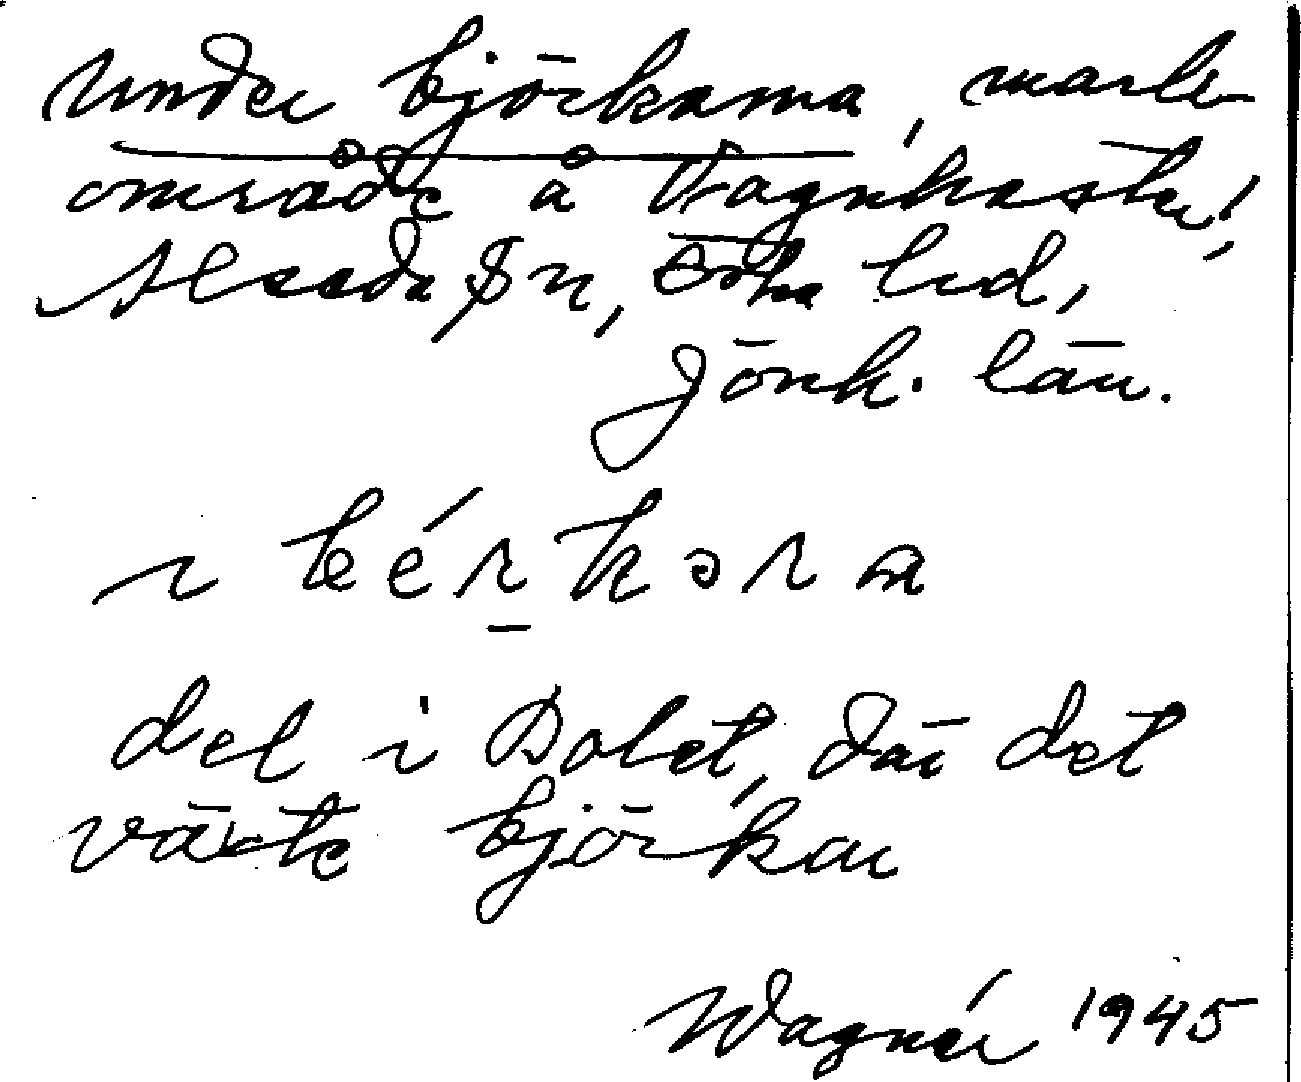 Under björkarna, mark-
område å Fagerhester,
Alseda sn, Östra hd,
Jönk. län.
i bérkəra
del i Bolet, där det
växte björkar
Wagnér 1945